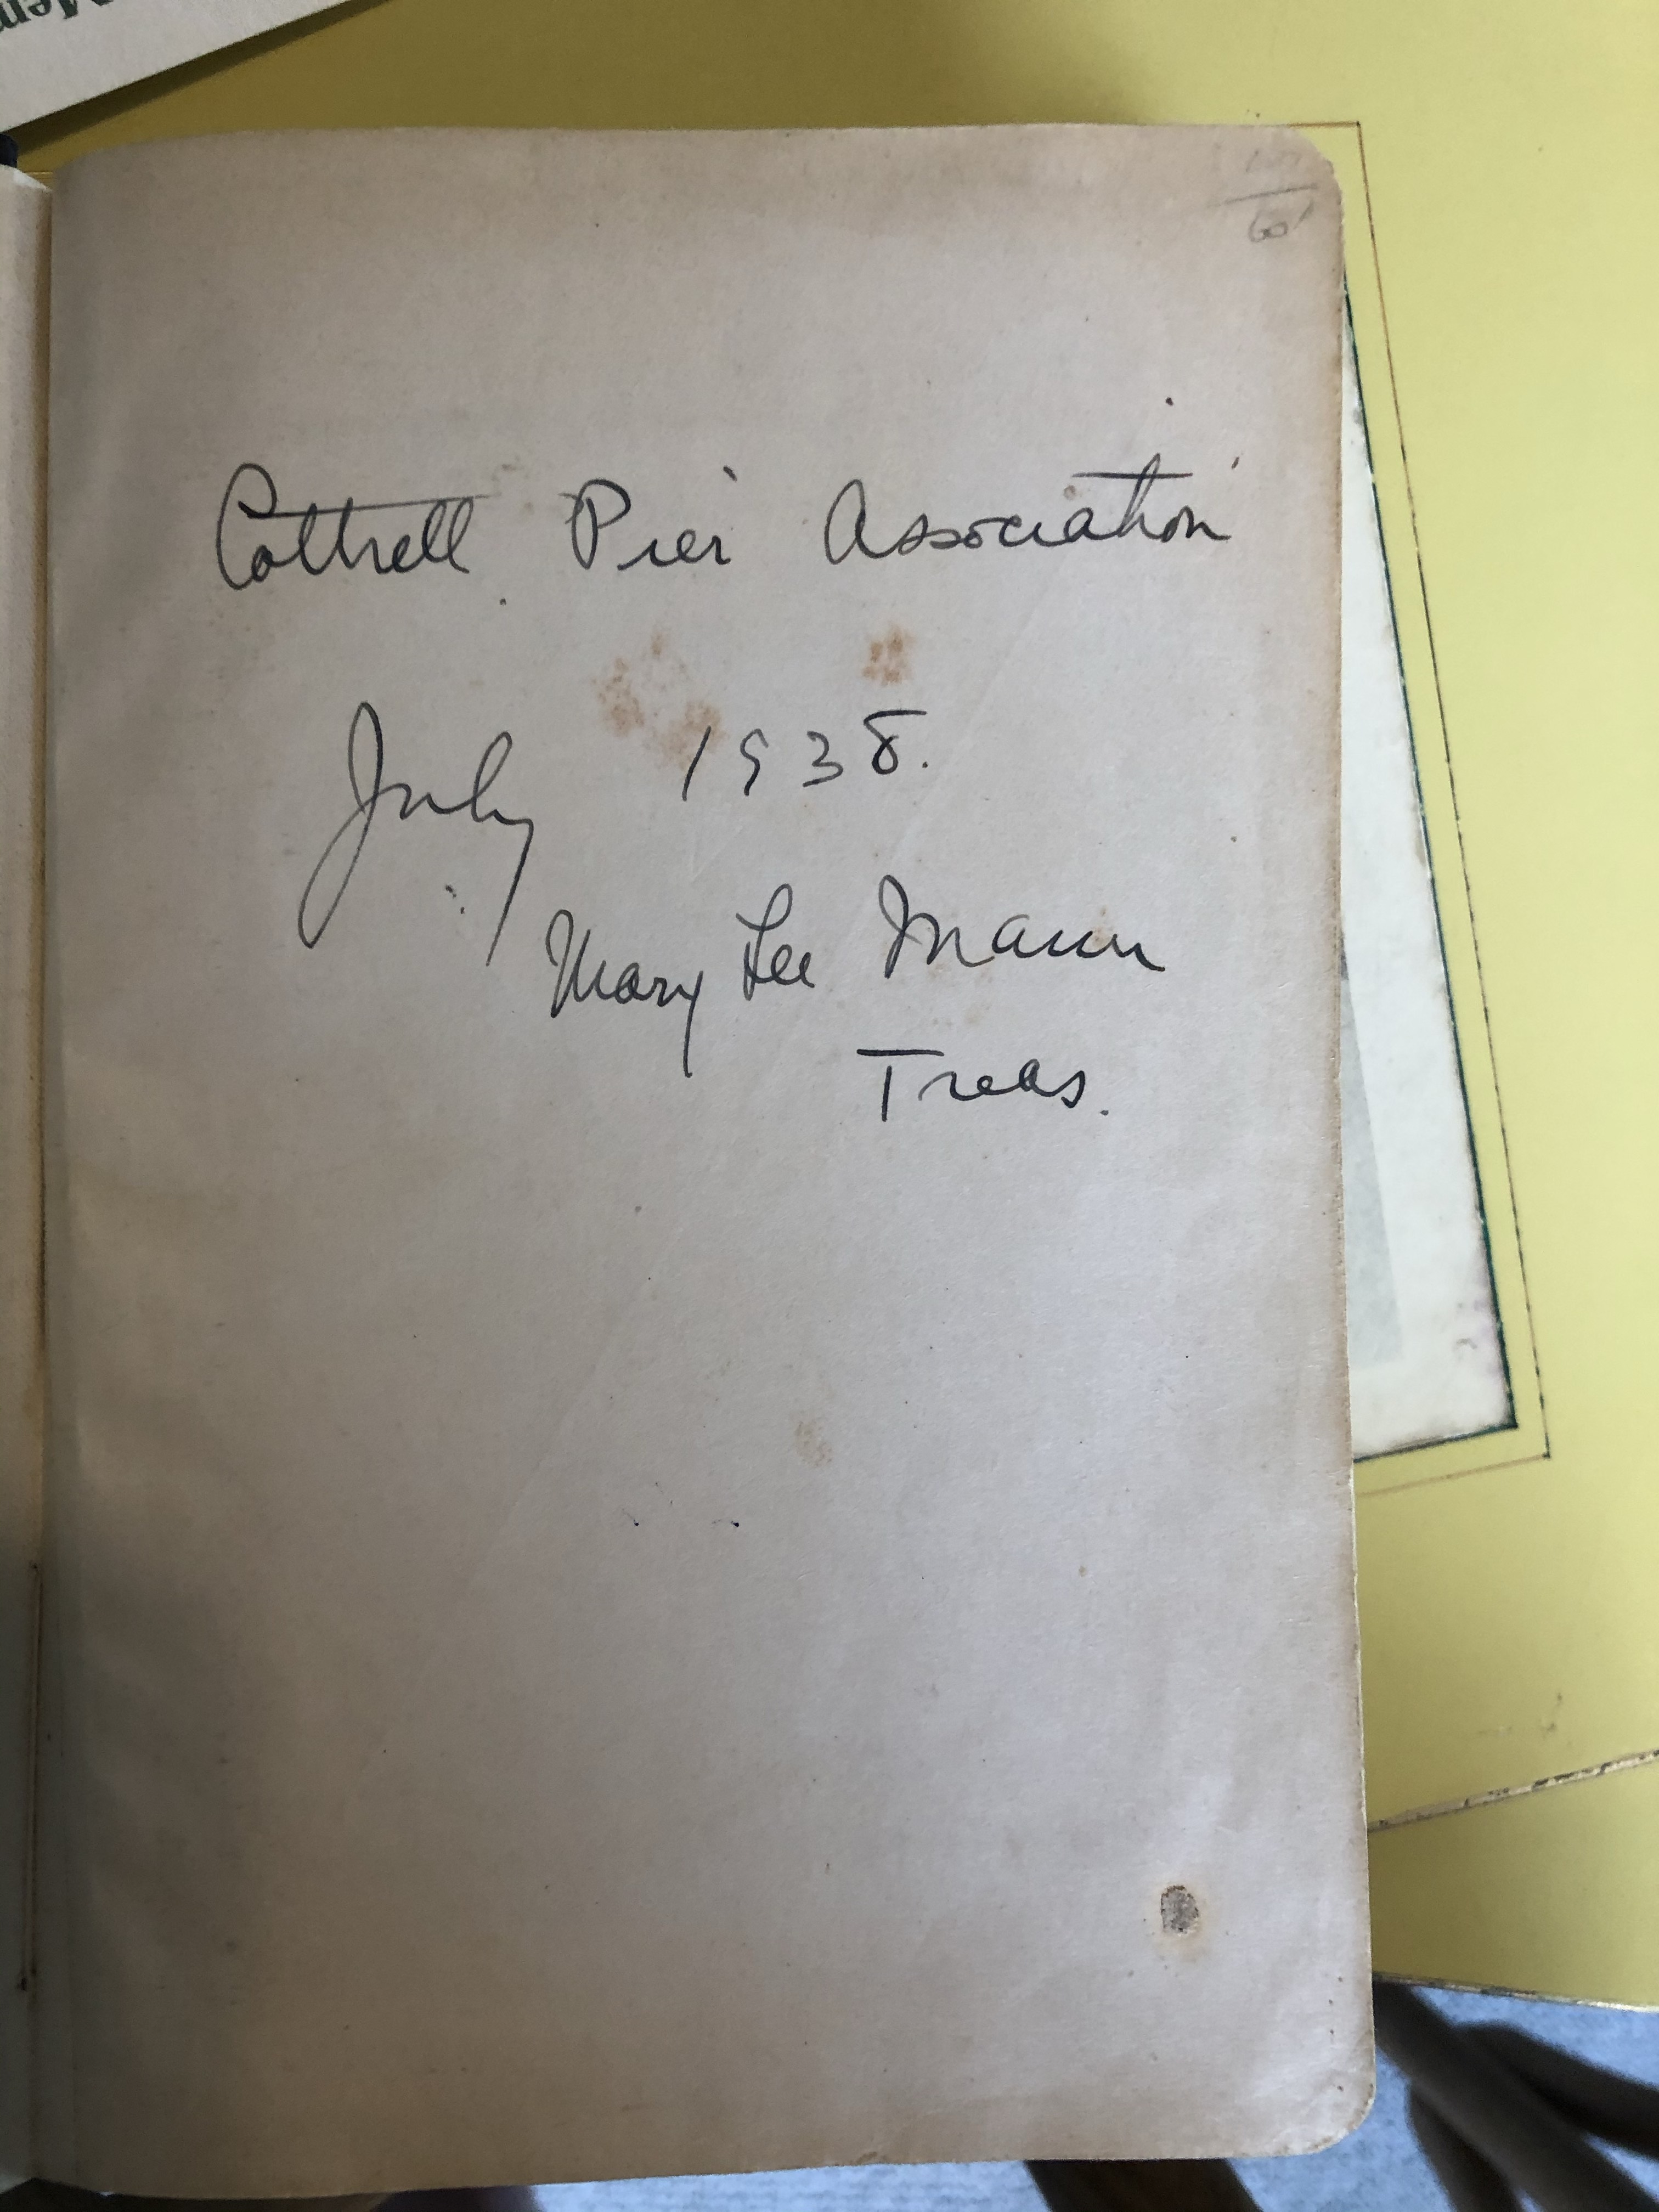 60
Cottrell Pier Association
July 1938.
Mary Lee Mann
Treas.